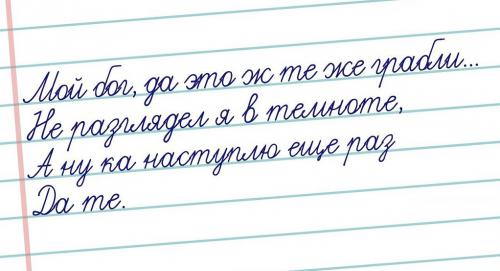 Мой бог, да это ж те же грабли...
Не разглядел я в темноте,
А ну ка наступлю еще раз
Да те.